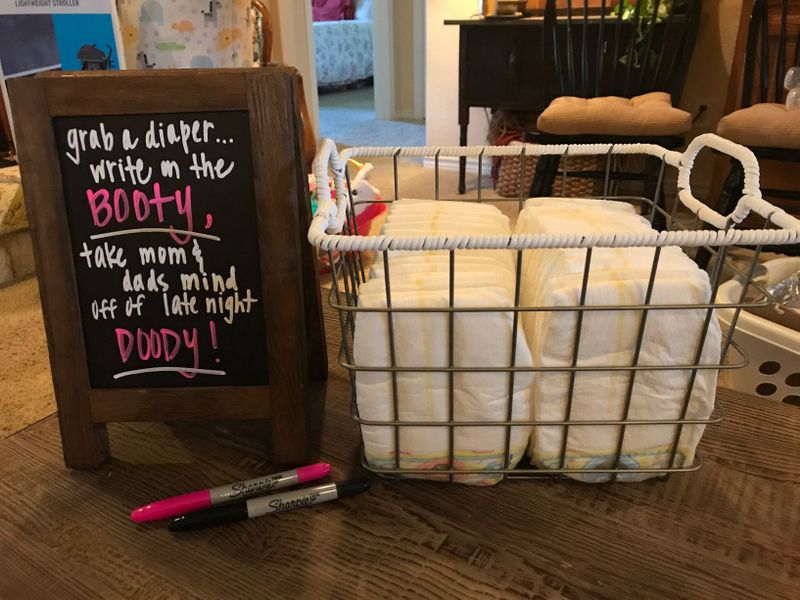 LIGHTWEIGHT STROLLER
grab a diaper...
write on the
BOOTY,
take mom &
dads mind
off of late night
DOODY!
Sharpie
Sharpie